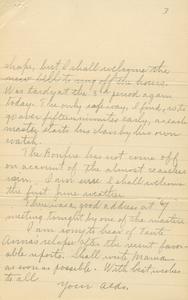 3
shape, but I shall welcome the
new bell to ring off the hours.
Was tardy at the 3rd period again
today. The only safe way, I find, is to
go over fifteen minutes early, as each
master starts his class by his own
watch.
The Bonfire has not come off
on account of the almost ceaseless
rain. I am sure I shall welcome
the first fine weather.
There was a good address at "Y"
meeting tonight by one of the masters
I am sorry to hear of Tante
Anna's relapse after the recent favor-
able reports. I shall write Mama
as soon as possible. With best wishes
to all
Your Aldo.